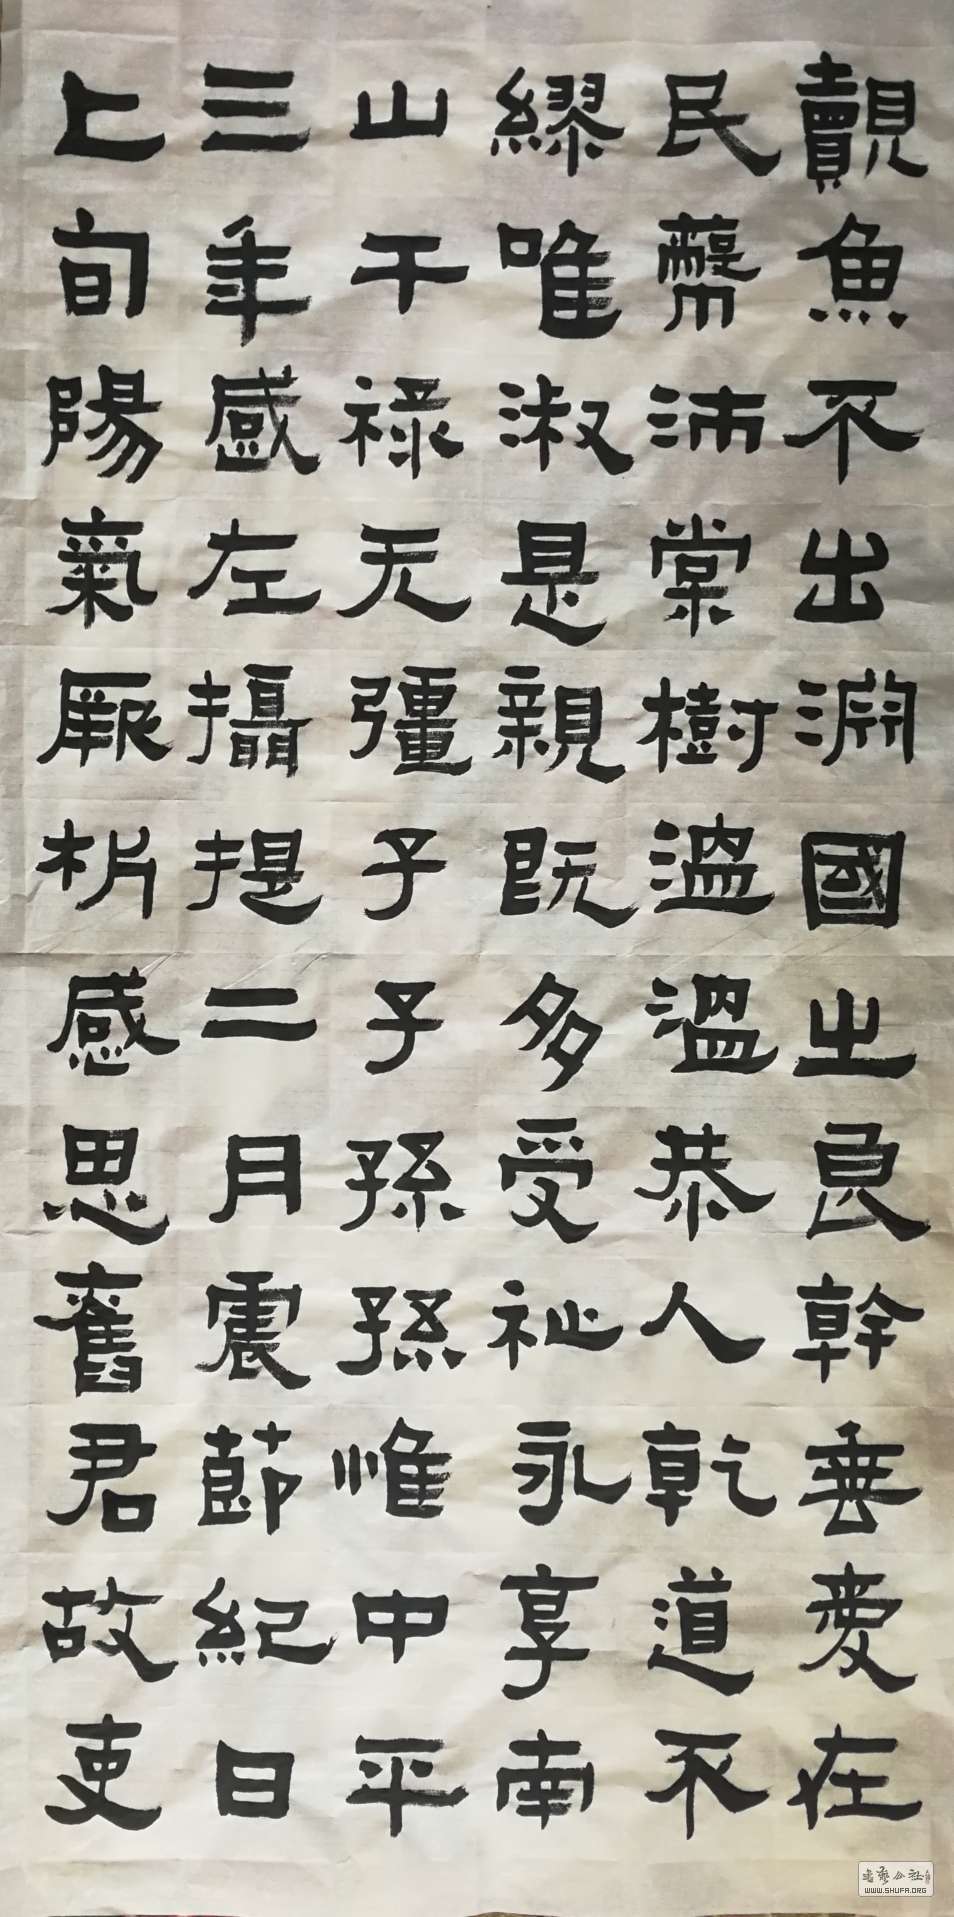 覿魚不出淵國之良幹垂愛在
民蔽沛棠樹溫溫恭人乾道不
繆唯淑是親既多受祉永享南
山干祿无彊子子孫孫惟中平
三年感左攝提二月震節紀日
上旬陽氣厥析感思舊君故吏
WWW.SHUFA.ORG